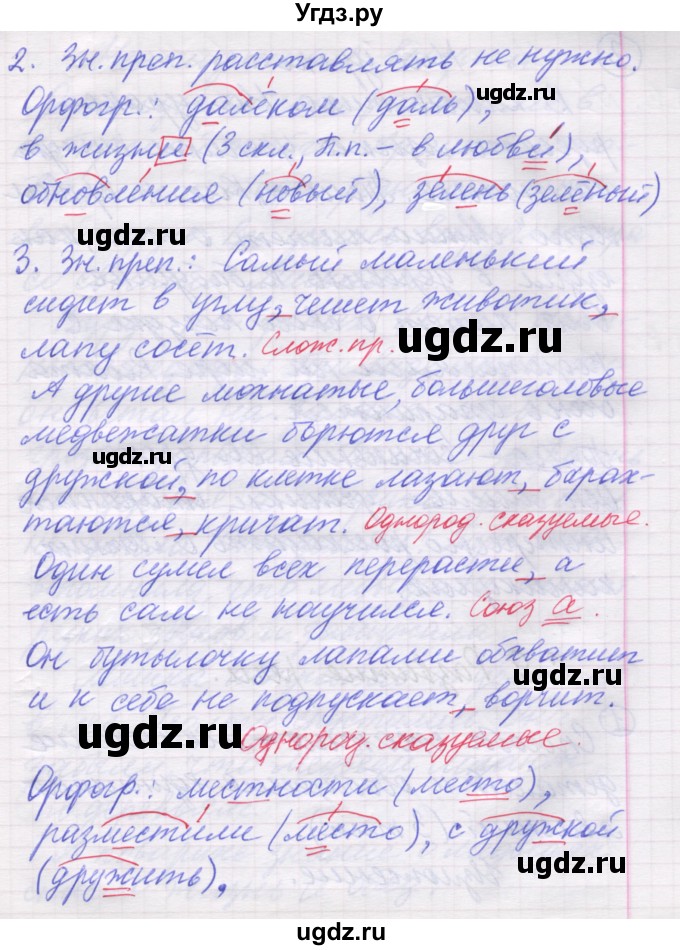 Угдз.ру
2. Зн. преп. расставлять не нужно.
Орфогр.: далёком (даль),
в жизни (3 скл., П.п. - в любви),
обновления (новый), зелень (зелёный)
3. Зн. преп.: Самый маленький
сидит в углу, чешет животик,
лапу сосёт. Слож. пр.
А другие мохнатые, большеголовые
медвежатки борются друг с
дружкой, по клетке лазают, барах-
таются, кричат. Однород. сказуемые.
Один сумел всех перерасти, а
есть сам не научился. Союз а.
Он бутылочку лапами обхватит
и к себе не подпускает, ворчит.
Однород. сказуемые.
Орфогр.: местности (место),
разместили (место), с дружкой
(дружить),
ugdz.ru
ugdz.ru
ugdz.ru
ugdz.ru
ugdz.ru
ugdz.ru
ugdz.ru
ugdz.ru
ugdz.ru
ugdz.ru